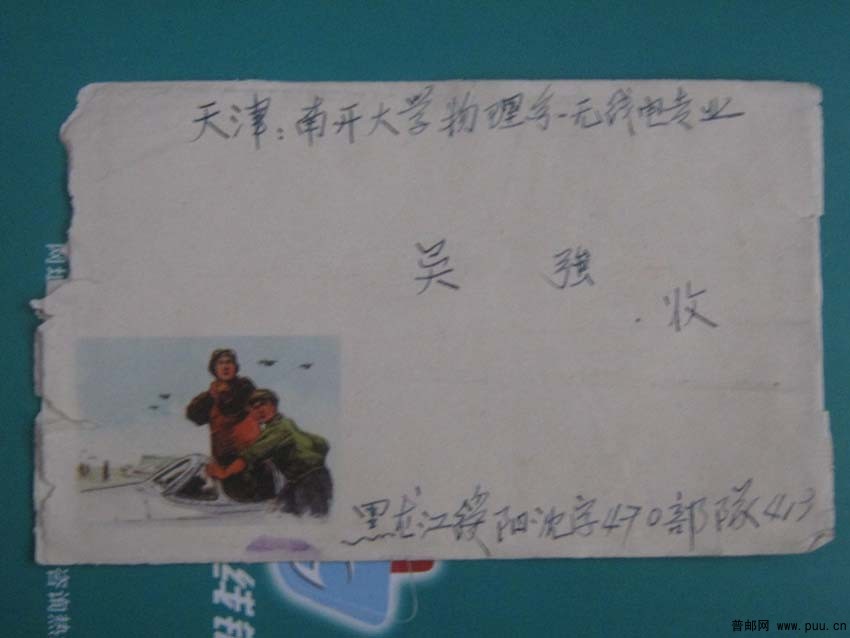 天津：南开大学物理系-无线电专业
吴 強
收
黑龙江绥阳沈字470部隊413
线
咨询热
普邮网 www.puu.cn